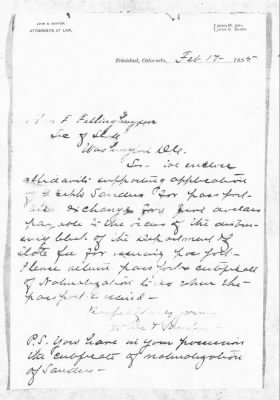 JOHN & HUNTER,
ATTORNEYS AT LAW.
Trinidad, Colorado, Feb 17 1885
F. Frelinghuysen
Sec of State
Washington D.C.
Sir - we enclose
affidavits supporting application
of Sanders for passport
also exchange for five dollars
payable to the order of the disbur-
sing clerk of the Department of
State fee for issuing passport-
Please return passport & certificate
of Naturalization to us when the
passport is issued -
Respectfully yours
John & Hunter
P.S. You have in your possession
the certificate of naturalization
of Sanders -